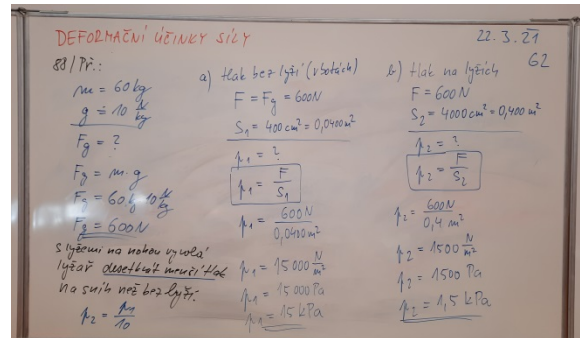 DEFORMAČNÍ ÚČINKY SÍLY
22. 3. 21
62
88/Př.:
m = 60 kg
g ≐ 10 N/kg
Fg = ?
Fg = m · g
Fg = 60 kg · 10 N/kg
Fg = 600 N
S lyžemi na nohou vyvolá
lyžař desetkrát menší tlak
na sníh než bez lyží.
p2 = p1/10
a) tlak bez lyží (v botách)
F = Fg = 600N
S1 = 400 cm² = 0,0400 m²
p1 = ?
p1 = F/S1
p1 = 600N/0,0400 m²
p1 = 15 000 N/m²
p1 = 15 000 Pa
p1 = 15 kPa
b) tlak na lyžích
F = 600N
S2 = 4000 cm² = 0,400 m²
p2 = ?
p2 = F/S2
p2 = 600N/0,4 m²
p2 = 1500 N/m²
p2 = 1500 Pa
p2 = 1,5 kPa